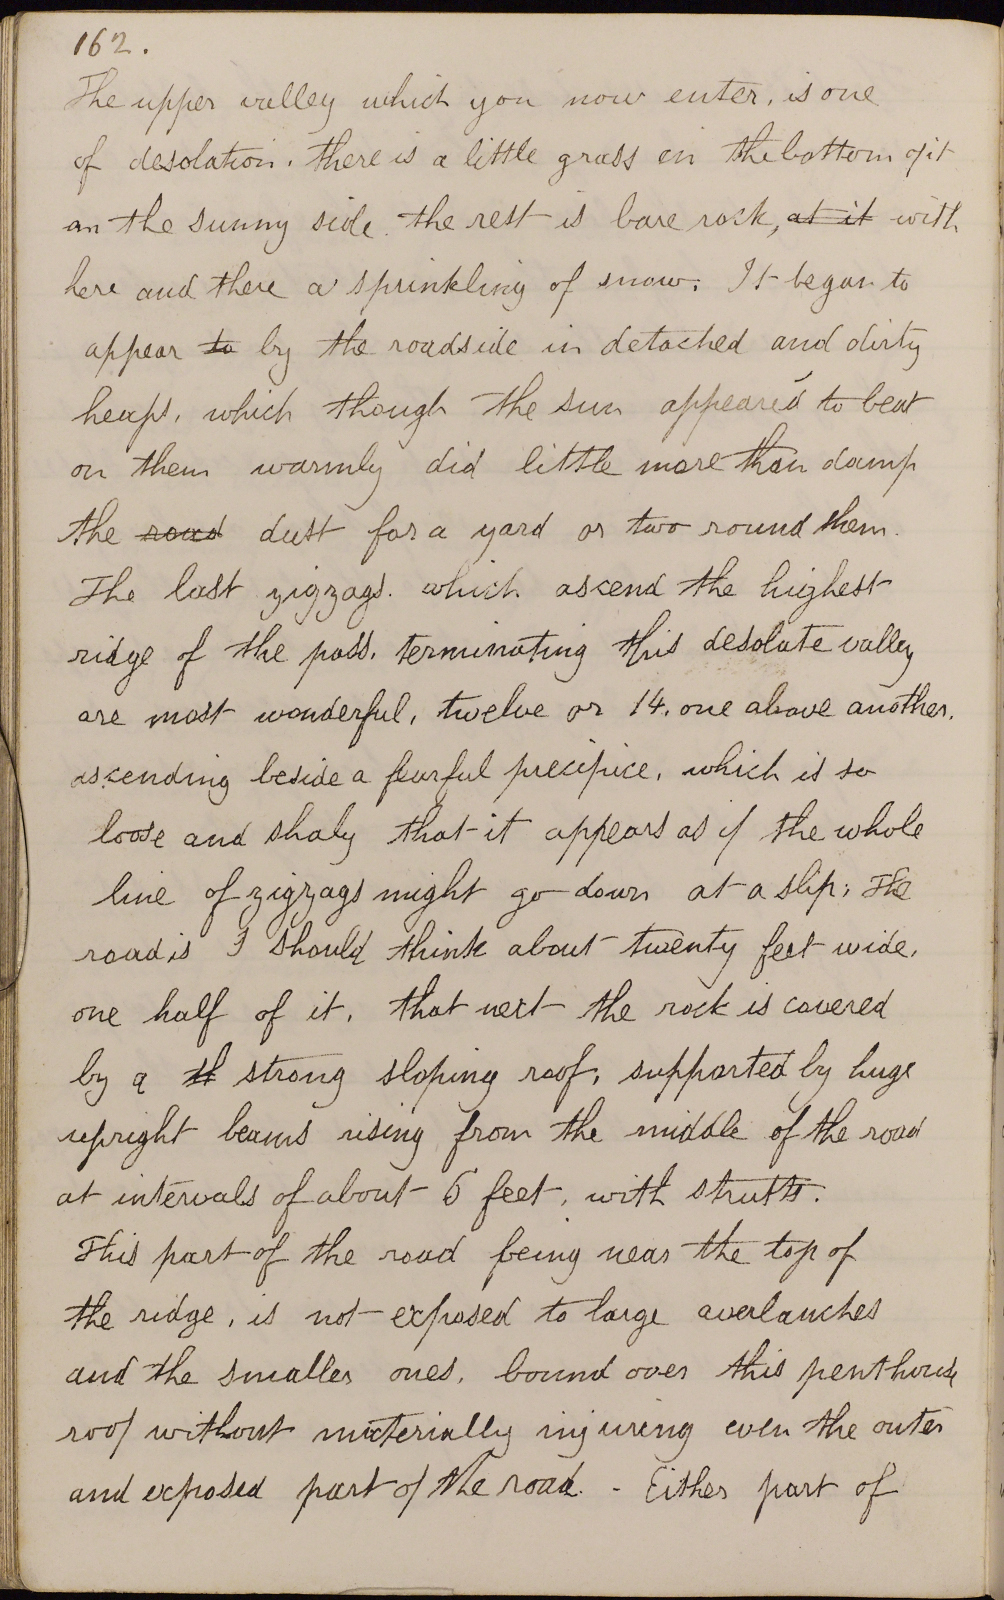 162.
The upper valley which you now enter, is one
of desolation. there is a little grass in the bottom of it
on the sunny side. the rest is bare rock, at it with
here and there a sprinkling of snow. It began to
appear to by the roadside in detached and dirty
heaps, which though the sun appeared to beat
on them warmly did little more than damp
the road dust for a yard or two round them.
The last zigzags. which ascend the highest
ridge of the pass, terminating this desolate valley
are most wonderful, twelve or 14, one above another,
ascending beside a fearful precipice, which is so
loose and shaly that it appears as if the whole
line of zigzags might go down at a slip; The
road is I should think about twenty feet wide,
one half of it, that next the rock is covered
by a st strong sloping roof, supported by huge
upright beams rising from the middle of the road
at intervals of about 6 feet, with strutts.
This part of the road being near the top of
the ridge, is not exposed to large averlanches
and the smaller ones, bound over this penthouse
roof without materially injuring even the outer
and exposed part of the road. - Either part of